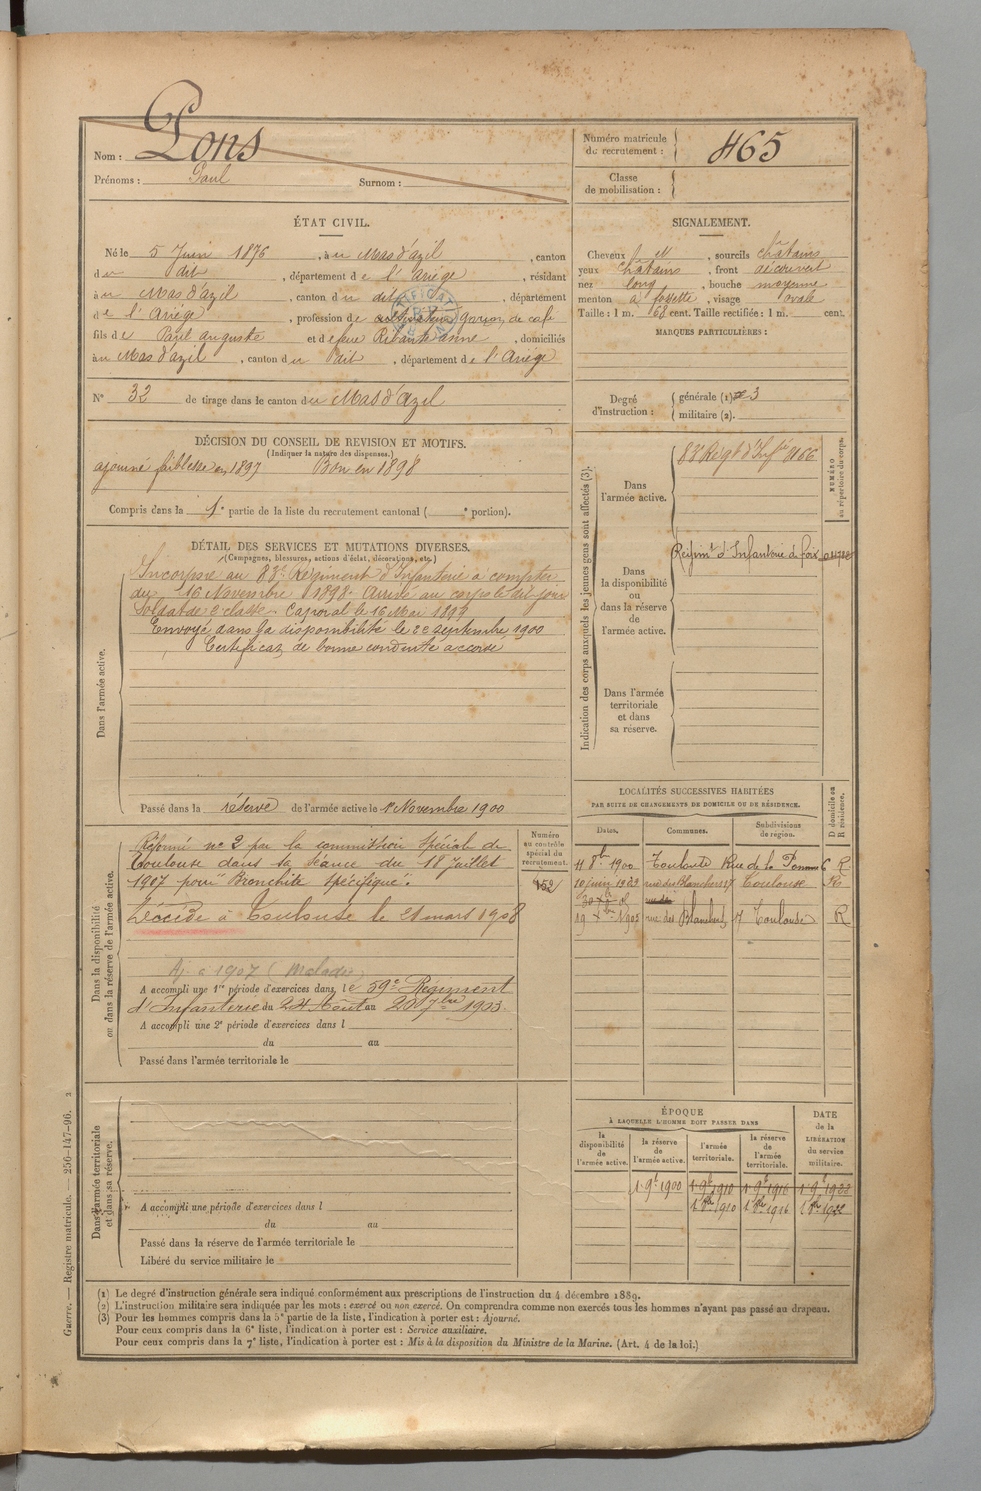 Nom : Pons
Prénoms : Paul Surnom :
Numéro matricule
du recrutement : 465
Classe
de mobilisation :
ÉTAT CIVIL.
Né le 5 Juin 1876, à u Mas d'azil, canton
du dit, département de l'Ariège, résidant
à u Mas d'azil, canton du dit, département
de l'Ariège, profession de cultivateur garçon de café
fils de Paul auguste et de feue Ribaute anne, domiciliés
à u Mas d'azil, canton du dit, département de l'Ariége
N° 32 de tirage dans le canton du Mas d'azil
SIGNALEMENT.
Cheveux et, sourcils châtains
yeux châtains, front découvert
nez long, bouche moyenne
menton à fossette, visage ovale
Taille : 1 m. 68 cent. Taille rectifiée : 1 m. cent.
MARQUES PARTICULIÈRES :
Degré
d'instruction :
générale (1) 3
militaire (2).
DÉCISION DU CONSEIL DE REVISION ET MOTIFS.
(Indiquer la nature des dispenses.)
ajourné faiblesse en 1897 Bon en 1898
Compris dans la 1e partie de la liste du recrutement cantonal ( e portion).
DÉTAIL DES SERVICES ET MUTATIONS DIVERSES.
(Campagnes, blessures, actions d'éclat, décorations, etc.)
Dans l'armée active.
Incorporé au 83e Régiment d'Infanterie à compter
du 16 Novembre 1898. Arrivé au corps le dit jour
Soldat de 2e classe. Caporal le 16 Mai 1899
Envoyé dans la disponibilité le 22 septembre 1900
Certificat de bonne conduite accordé
Passé dans la réserve de l'armée active le 1er Novembre 1900
Indication des corps auxquels les jeunes gens sont affectés (3).
Dans
l'armée active.
83e Régt d'Infie 4166
NUMÉRO
au répertoire du corps.
Dans
la disponibilité
ou
dans la réserve
de
l'armée active.
Régimt d'Infanterie à foix
Dans l'armée
territoriale
et dans
sa réserve.
LOCALITÉS SUCCESSIVES HABITÉES
PAR SUITE DE CHANGEMENTS DE DOMICILE OU DE RÉSIDENCE.
D domicile ou
R résidence.
Dates. Communes. Subdivisions
de région.
11 8bre 1900 Toulouse Rue de la Pomme 6 R
10 juin 1903 rue des Blanchers 17 Toulouse R
19 Xbre 1905 rue des Blanchers, 7 Toulouse R
Dans la disponibilité
ou dans la réserve de l'armée active.
Numéro
au contrôle
spécial du
recrutement.
152
Réformé n° 2 par la commission spéciale de
Toulouse dans sa séance du 18 Juillet
1907 pour "Bronchite spécifique".
Décédé à Toulouse le 21 mars 1908
Aj. à 1907 (Malade)
A accompli une 1re période d'exercices dans le 59e Régiment
d'Infanterie du 24 Août au 20 7bre 1903.
A accompli une 2e période d'exercices dans l
du au
Passé dans l'armée territoriale le
Dans l'armée territoriale
et dans sa réserve.
A accompli une période d'exercices dans l
du au
Passé dans la réserve de l'armée territoriale le
Libéré du service militaire le
ÉPOQUE
À LAQUELLE L'HOMME DOIT PASSER DANS
DATE
de la
LIBÉRATION
du service
militaire.
la
disponibilité
de
l'armée active.
la réserve
de
l'armée active.
l'armée
territoriale.
la réserve
de
l'armée
territoriale.
1 9bre 1900 1 9bre 1910 1 9bre 1916 1 9bre 1922
1 8bre 1910 1 8bre 1916 1 8bre 1922
(1) Le degré d'instruction générale sera indiqué conformément aux prescriptions de l'instruction du 4 décembre 1889.
(2) L'instruction militaire sera indiquée par les mots : exercé ou non exercé. On comprendra comme non exercés tous les hommes n'ayant pas passé au drapeau.
(3) Pour les hommes compris dans la 5e partie de la liste, l'indication à porter est : Ajourné.
Pour ceux compris dans la 6e liste, l'indication à porter est : Service auxiliaire.
Pour ceux compris dans la 7e liste, l'indication à porter est : Mis à la disposition du Ministre de la Marine. (Art. 4 de la loi.)
Guerre. — Registre matricule. — 256-147-96. 2